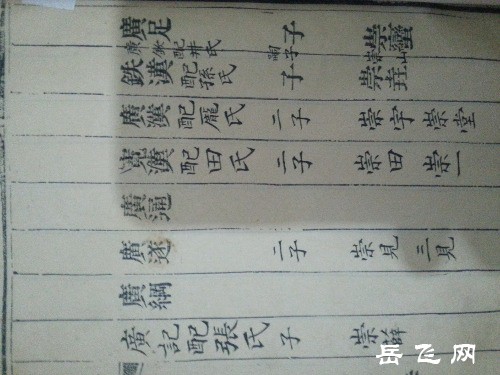 廣足 子 崇
漢配孫氏 子 崇
廣漢配龐氏 二子 崇宇 崇堂
漢配田氏 二子 崇田 崇一
廣通
廣遂 二子 崇見 三見
廣綱
廣記配張氏 子 崇
岳飞网